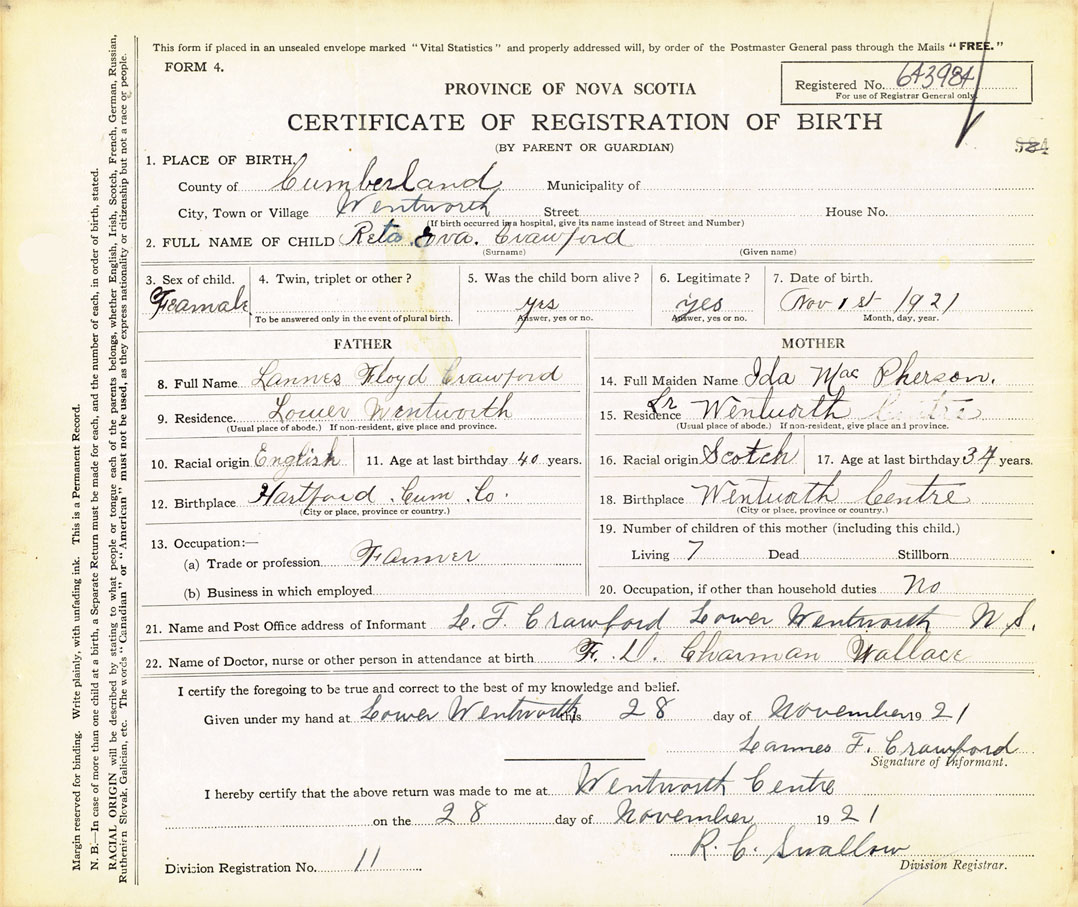 This form if placed in an unsealed envelope marked "Vital Statistics" and properly addressed will, by order of the Postmaster General pass through the Mails "FREE."
FORM 4.
Registered No. 643984
For use of Registrar General only.
PROVINCE OF NOVA SCOTIA
CERTIFICATE OF REGISTRATION OF BIRTH
(BY PARENT OR GUARDIAN)
984
1. PLACE OF BIRTH,
County of Cumberland Municipality of
City, Town or Village Wentworth Street House No.
(If birth occurred in a hospital, give its name instead of Street and Number)
2. FULL NAME OF CHILD Reta Eva. Crawford
(Surname) (Given name)
3. Sex of child. 4. Twin, triplet or other? 5. Was the child born alive? 6. Legitimate? 7. Date of birth.
Feamale yes yes Nov 1st 1921
To be answered only in the event of plural birth. Answer, yes or no. Answer, yes or no. Month, day, year.
FATHER
8. Full Name Lannes Floyd Crawford
9. Residence. Lower Wentworth
(Usual place of abode.) If non-resident, give place and province.
10. Racial origin English 11. Age at last birthday 40 years.
12. Birthplace Hartford Cum Co.
(City or place, province or country.)
13. Occupation:—
(a) Trade or profession Farmer
(b) Business in which employed
MOTHER
14. Full Maiden Name Ida Mac Pherson.
15. Residence Lr Wentworth Centre
(Usual place of abode.) If non-resident, give place and province.
16. Racial origin Scotch 17. Age at last birthday 34 years.
18. Birthplace Wentworth Centre
(City or place, province or country.)
19. Number of children of this mother (including this child.)
Living 7 Dead Stillborn
20. Occupation, if other than household duties No
21. Name and Post Office address of Informant L. F. Crawford Lower Wentworth N S.
22. Name of Doctor, nurse or other person in attendance at birth F. D. Charman Wallace
I certify the foregoing to be true and correct to the best of my knowledge and belief.
Given under my hand at Lower Wentworth this 28 day of November 1921
Lannes F. Crawford
Signature of Informant.
I hereby certify that the above return was made to me at Wentworth Centre
on the 28 day of November 1921
R. C. Swallow
Division Registration No. 11 Division Registrar.
Margin reserved for binding. Write plainly, with unfading ink. This is a Permanent Record.
N. B.—In case of more than one child at a birth, a Separate Return must be made for each, and the number of each, in order of birth, stated.
RACIAL ORIGIN will be described by stating to what people or tongue each of the parents belongs, whether English, Irish, Scotch, French, German, Russian,
Ruthenirn Slovak, Galician, etc. The words "Canadian" or "American" must not be used, as they express nationality or citizenship but not a race or people.